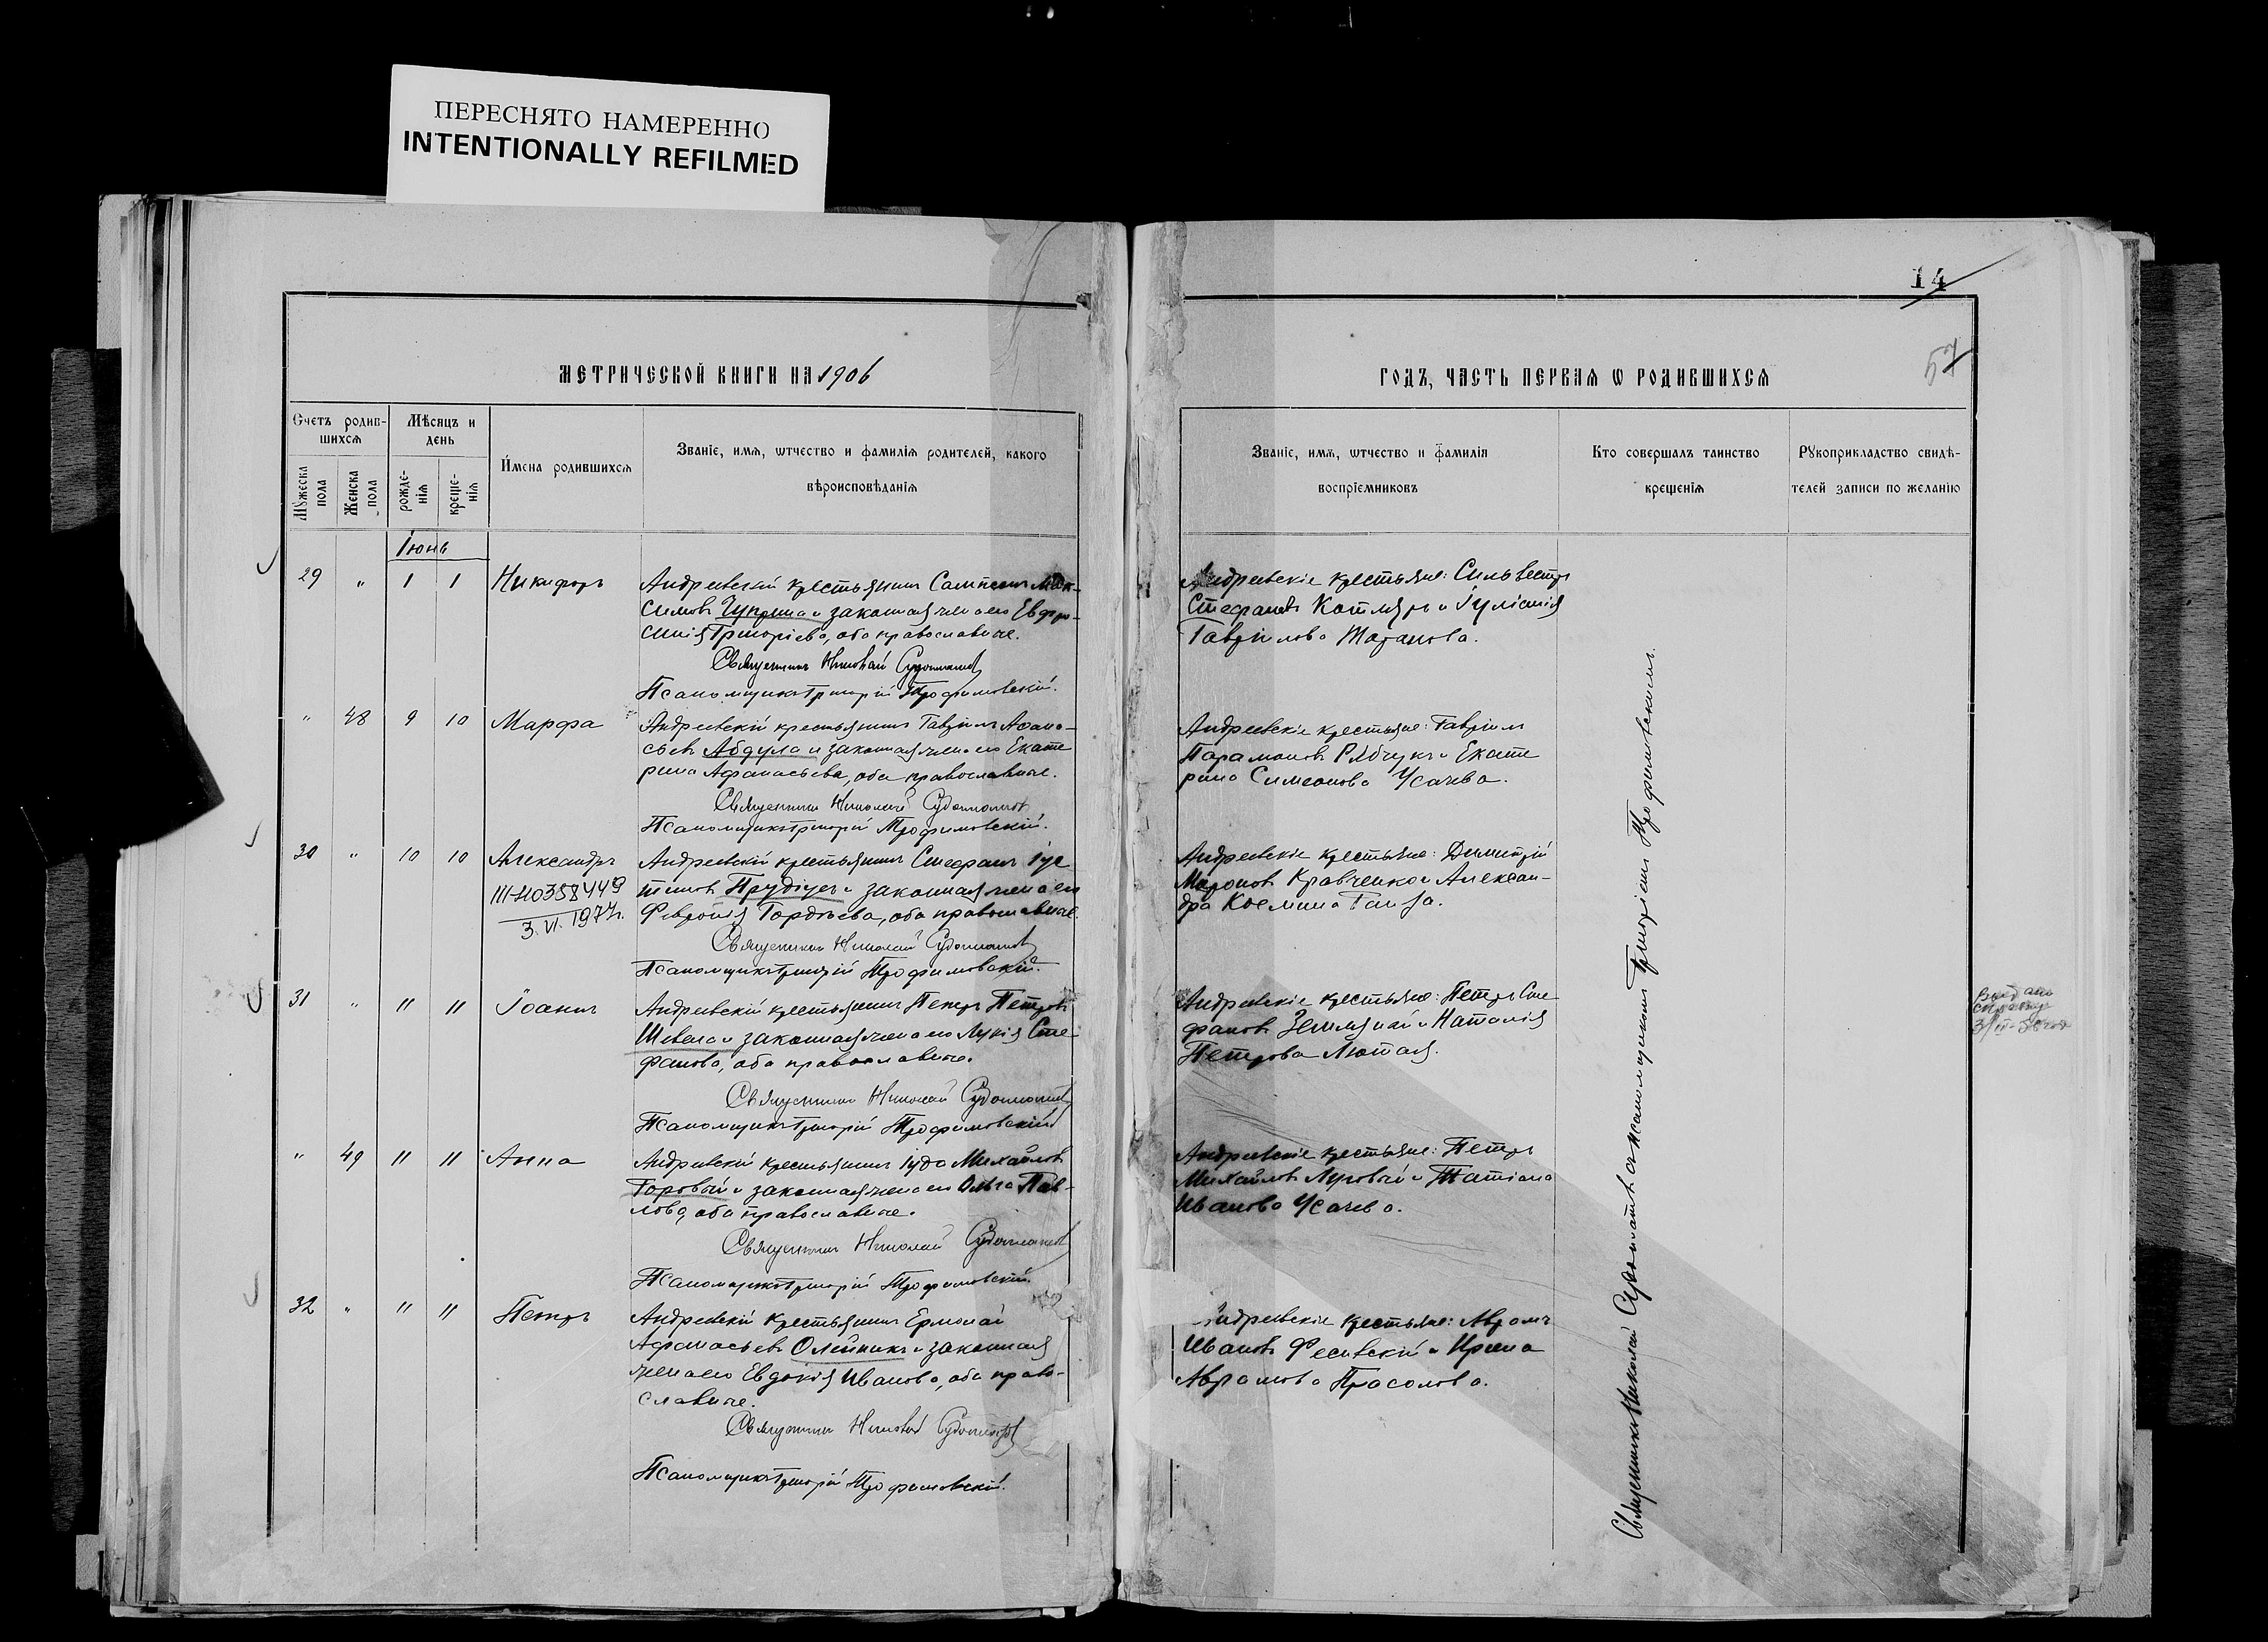 ПЕРЕСНЯТО НАМЕРЕННО
INTENTIONALLY REFILMED
14
57
МЕТРИЧЕСКОЙ КНИГИ НА 1906
ГОДЪ, ЧАСТЬ ПЕРВАЯ Ѡ РОДИВШИХСЯ
Счетъ родив-
шихся
Мѣсяцъ и
день
Мꙋжеска
пола
Женска
пола
рожде-
нія
креще-
нія
Имена родившихся
Званіе, имя, ѡтчество и фамилія родителей, какого
вѣроисповѣданія
Званіе, имя, ѡтчество и фамилія
воспріемниковъ
Кто совершалъ таинство
крещенія
Рꙋкоприкладство свидѣ-
телей записи по желанію
Іюнь
29 " 1 1 Никифоръ
Андреевскій крестьянинъ Сампсонъ Мак-
симовъ Чуприна и законная жена его Евфро-
синія Григоріева, оба православные.
Священникъ Николай
Псаломщикъ Григорій Трофимовскій.
Андреевскіе крестьяне: Сильвестръ
Стефановъ Котляръ и Іуліанія
Гавріилова Таранова.
" 48 9 10 Марфа
Андреевскій крестьянинъ Гавріилъ Афана-
сьевъ Абдула и законная жена его Екате
рина Афанасьева, оба православные.
Священникъ Николай
Псаломщикъ Григорій Трофимовскій.
Андреевскіе крестьяне: Гавріилъ
Парамоновъ Рябчукъ и Екате
рина Симеонова Усачева.
30 " 10 10 Александръ
III-НО358449
3. VI. 1977г.
Андреевскій крестьянинъ Стефанъ Іус
тиновъ Прудіусъ и законная жена его
Февронія Гордѣева, оба православные.
Священникъ Николай
Псаломщикъ Григорій Трофимовскій.
Андреевскіе крестьяне: Димитрій
Мароновъ Кравченко и Алексан-
дра Космина
31 " 11 11 Іоаннъ
Андреевскій крестьянинъ Петръ Петровъ
Шевела и законная жена его Лукія Сте-
фанова, оба православные.
Священникъ Николай
Псаломщикъ Григорій Трофимовскій
Андреевскіе крестьяне: Петръ Сте
фановъ Земляной и Наталія
Петрова Лютая.
Выдано
справку
" 49 11 11 Анна
Андреевскій крестьянинъ Іуда Михайловъ
Горовый и законная жена его Ольга Пав-
лова, оба православные.
Священникъ Николай
Псаломщикъ Григорій Трофимовскій.
Андреевскіе крестьяне: Петръ
Михайловъ Луговый и Татіана
Иванова Усачева.
32 " 11 11 Петръ
Андреевскій крестьянинъ Ермолай
Афанасьевъ Олейникъ и законная
жена его Евдокія Иванова, оба право-
славные.
Священникъ Николай
Псаломщикъ Григорій Трофимовскій.
Андреевскіе крестьяне: Аврамъ
Ивановъ Фесевскій и Ирина
Аврамова Прасолова.
Священникъ Николай съ псаломщикомъ Григоріемъ Трофимовскимъ.